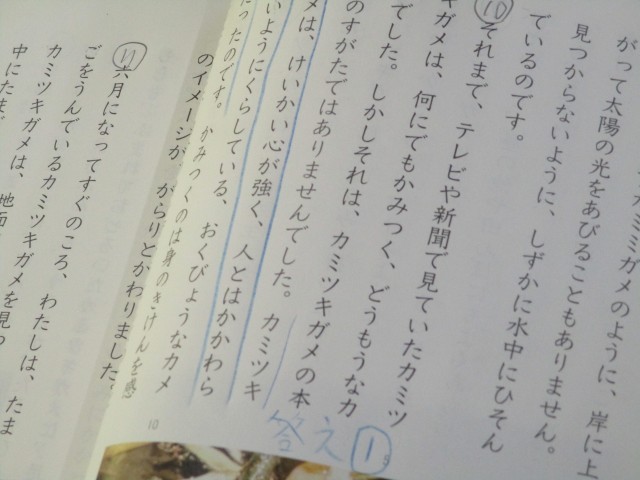 カミミガメのように、岸に上
がって太陽の光をあびることもありません。
見つからないように、しずかに水中にひそん
でいるのです。
⑩それまで、テレビや新聞で見ていたカミツ
キガメは、何にでもかみつく、どうもうなカ
でした。しかしそれは、カミツキガメの本
のすがたではありませんでした。カミツキ
メは、けいかい心が強く、人とはかかわら
いようにくらしている、おくびょうなカメ
ったのです。かみつくのは身のきけんを感
のイメージが、がらりとかわりました。
⑪六月になってすぐのころ、わたしは、たま
ごをうんでいるカミツキガメを見つ
カミツキガメは、地面
中にたま
10
答え①